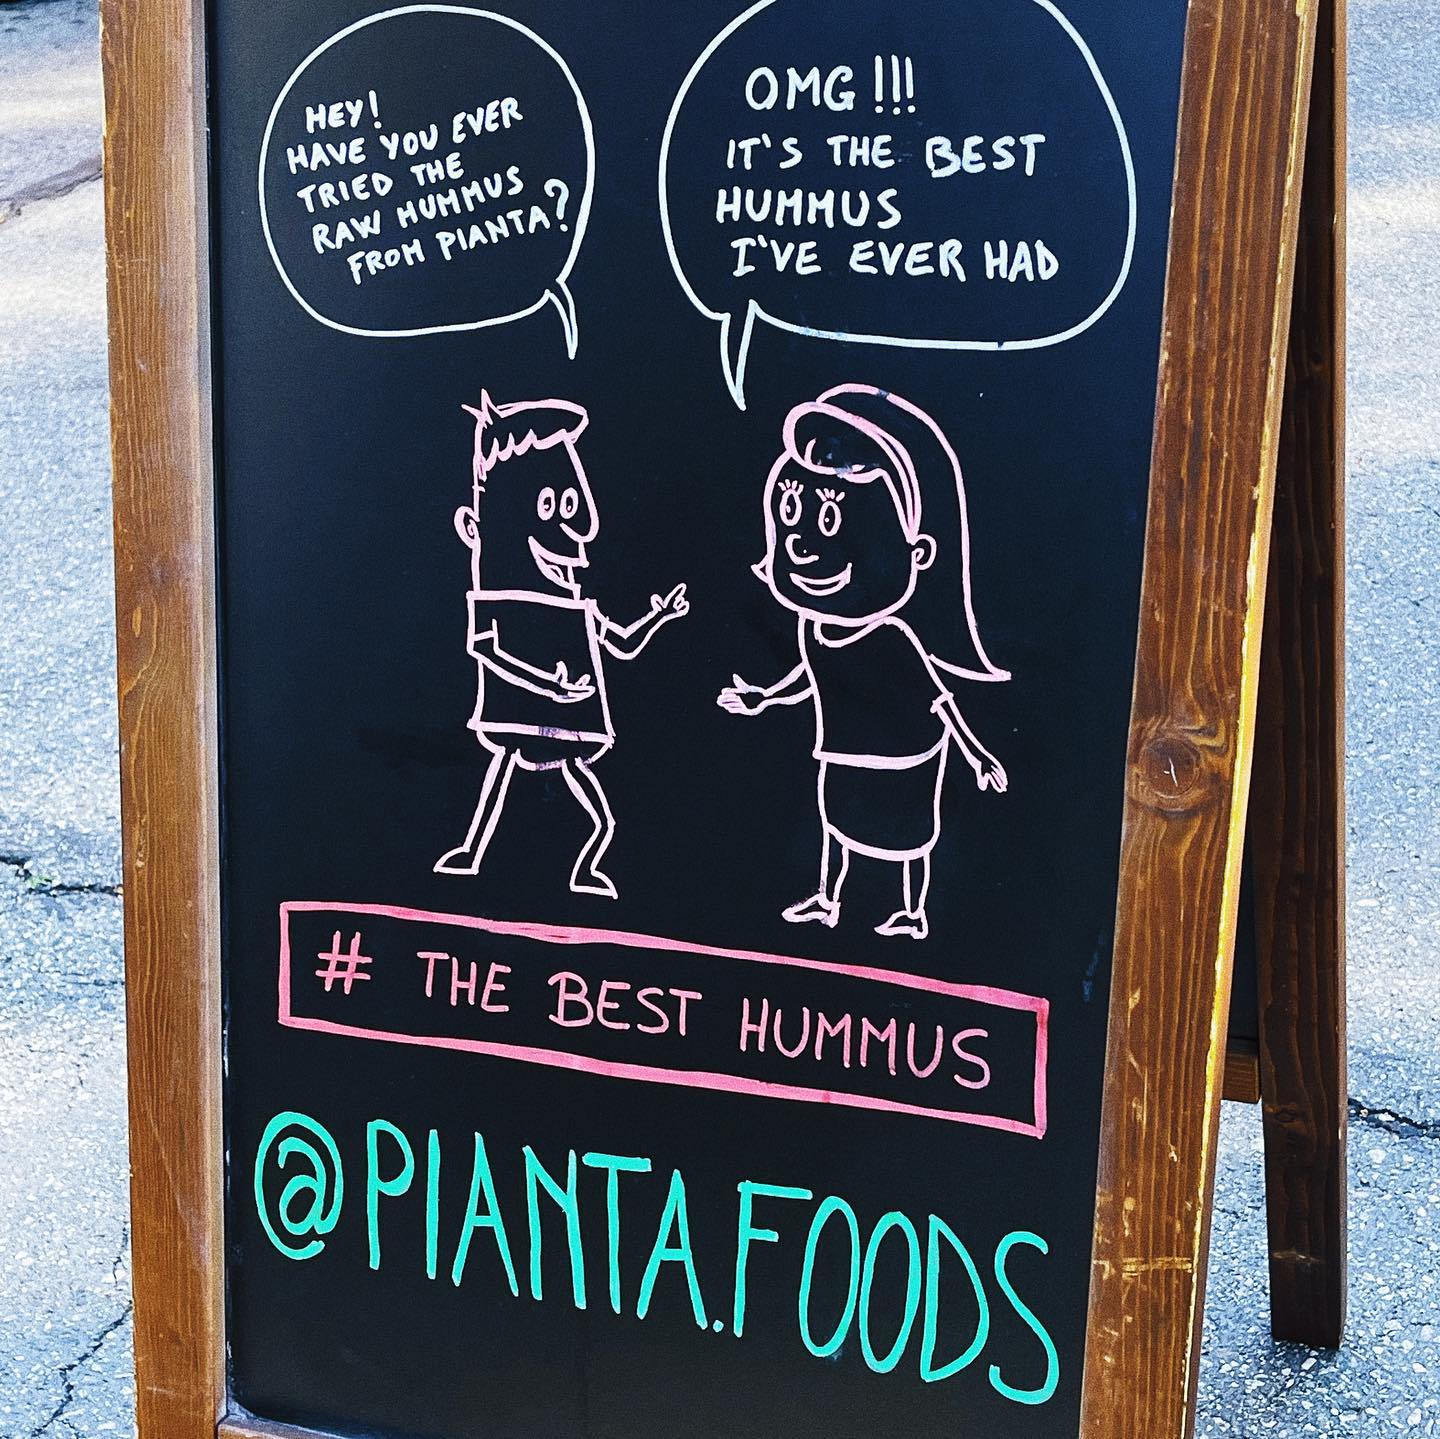 HEY!
HAVE YOU EVER
TRIED THE
RAW HUMMUS
FROM PIANTA?
OMG!!!
IT'S THE BEST
HUMMUS
I'VE EVER HAD
# THE BEST HUMMUS
@PIANTA.FOODS